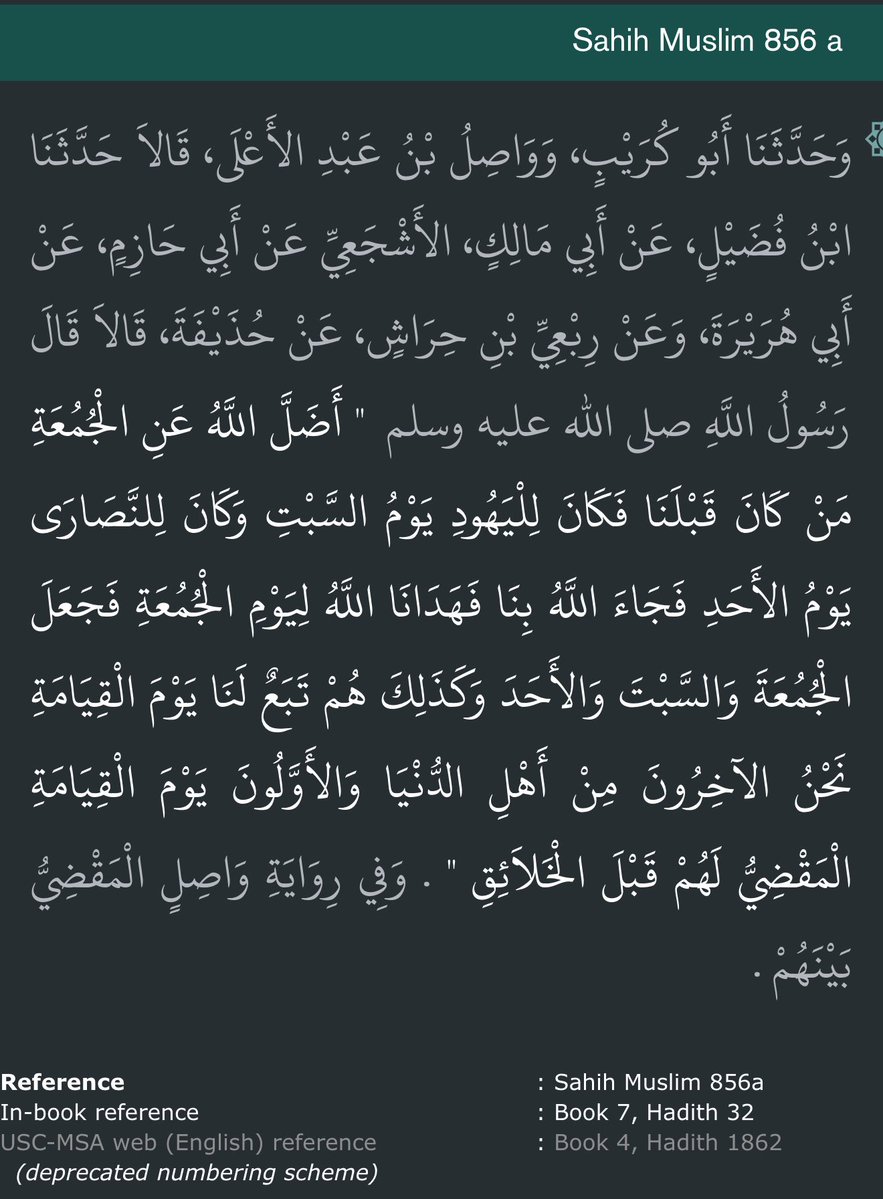 Sahih Muslim 856 a
وَحَدَّثَنَا أَبُو كُرَيْبٍ، وَوَاصِلُ بْنُ عَبْدِ الأَعْلَى، قَالاَ حَدَّثَنَا
ابْنُ فُضَيْلٍ، عَنْ أَبِي مَالِكٍ، الأَشْجَعِيِّ عَنْ أَبِي حَازِمٍ، عَنْ
أَبِي هُرَيْرَةَ، وَعَنْ رِبْعِيِّ بْنِ حِرَاشٍ، عَنْ حُذَيْفَةَ، قَالاَ قَالَ
رَسُولُ اللَّهِ صلى الله عليه وسلم " أَضَلَّ اللَّهُ عَنِ الْجُمُعَةِ
مَنْ كَانَ قَبْلَنَا فَكَانَ لِلْيَهُودِ يَوْمُ السَّبْتِ وَكَانَ لِلنَّصَارَى
يَوْمُ الأَحَدِ فَجَاءَ اللَّهُ بِنَا فَهَدَانَا اللَّهُ لِيَوْمِ الْجُمُعَةِ فَجَعَلَ
الْجُمُعَةَ وَالسَّبْتَ وَالأَحَدَ وَكَذَلِكَ هُمْ تَبَعٌ لَنَا يَوْمَ الْقِيَامَةِ
نَحْنُ الآخِرُونَ مِنْ أَهْلِ الدُّنْيَا وَالأَوَّلُونَ يَوْمَ الْقِيَامَةِ
الْمَقْضِيُّ لَهُمْ قَبْلَ الْخَلاَئِقِ " . وَفِي رِوَايَةِ وَاصِلٍ الْمَقْضِيُّ
بَيْنَهُمْ .
Reference : Sahih Muslim 856a
In-book reference : Book 7, Hadith 32
USC-MSA web (English) reference : Book 4, Hadith 1862
(deprecated numbering scheme)